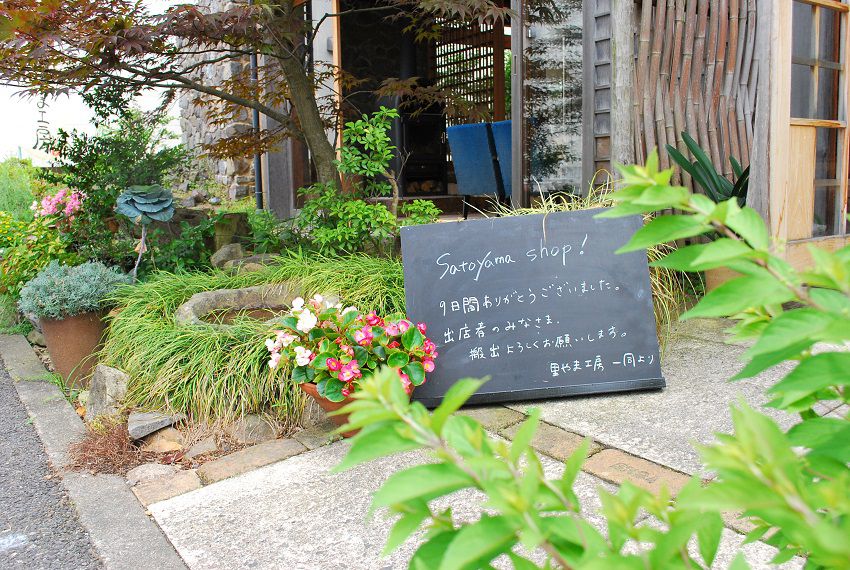 Satoyama shop!
9日間ありがとうございました。
出店者のみなさま、
搬出よろしくお願いします。
里やま工房 一同より